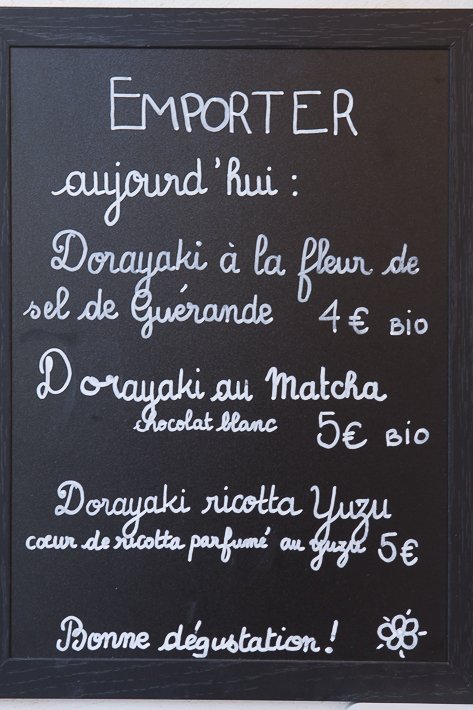 EMPORTER
aujourd'hui :
Dorayaki à la fleur de
sel de Guérande 4€ BIO
Dorayaki au Matcha
chocolat blanc 5€ BIO
Dorayaki ricotta Yuzu
cœur de ricotta parfumé au yuzu 5€
Bonne dégustation !